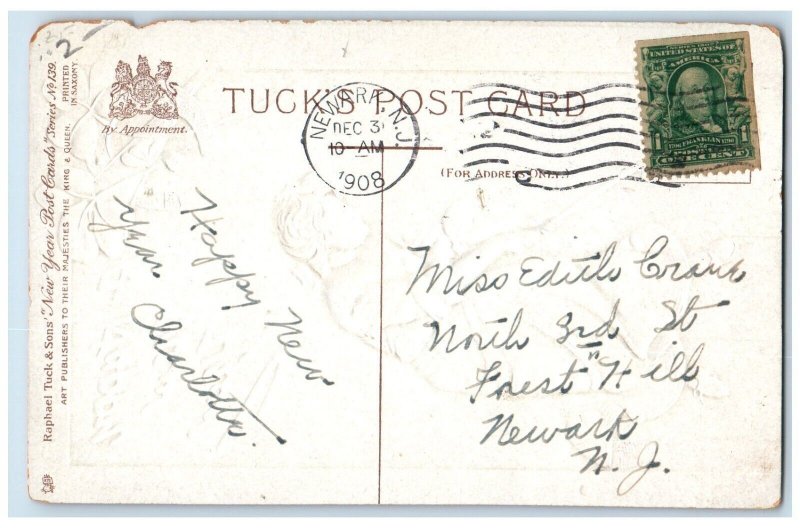 2
Raphael Tuck & Sons' "New Year Post Cards" Series No 139.
ART PUBLISHERS TO THEIR MAJESTIES THE KING & QUEEN.
PRINTED
IN SAXONY.
By Appointment.
TUCK'S POST CARD
(FOR ADDRESS ONLY.)
NEWARK, N.J.
DEC 3
10-AM
1908
SERIES 1902
UNITED STATES OF
AMERICA
1706 FRANKLIN 1790
1 ONE CENT 1
Happy New
Year.
Charlotte.
Miss Edith Crane
North 3rd St
Forest "Hill
Newark
N. J.